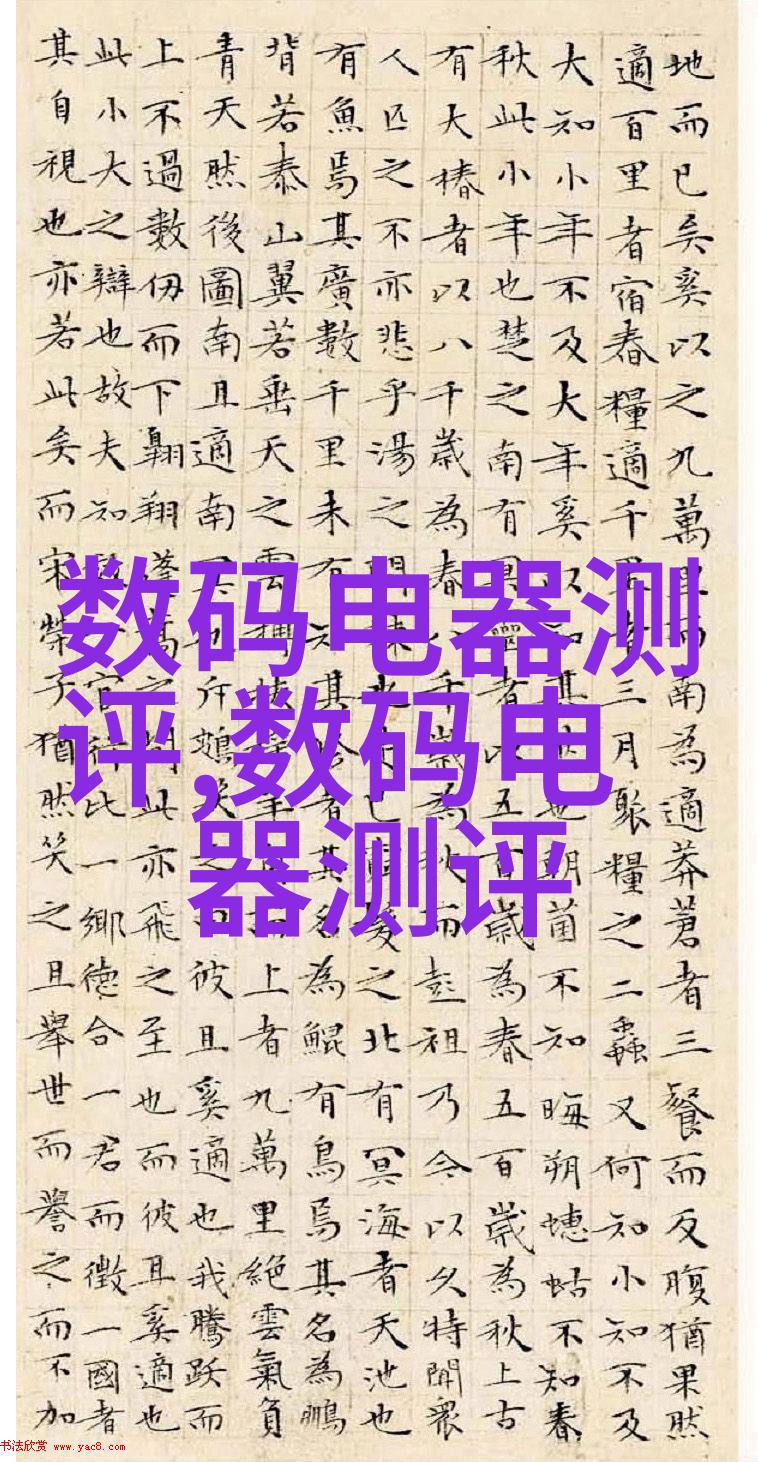 地而已矣奚以之九萬里而南為適莽蒼者三餐而反腹猶果然
適百里者宿舂糧適千里者三月聚糧之二蟲又何知小知不及
大知小年不及大年奚以知其也朝菌不知晦朔蟪蛄不知春
秋此小年也楚之南有冥靈者以五百歲為春五百歲為秋上古
有大椿者以八千歲為春千歲為秋而彭祖乃今以久特聞衆
人匹之不亦悲乎湯之問棘也已髮之北有冥海者天池也
有魚焉其廣數千里未有知其者其名為鯤有鳥焉其名為鵬
背若泰山翼若垂天之雲搏扶羊上者九萬里絕雲氣負
青天然後圖南且適南冥也斥鴳笑之曰彼且奚適也我騰躍而
上不過數仞而下翱翔蓬蒿之間此亦飛之至也而彼且奚適也
此小大之辯也故夫知效官行比一鄉德合一君而徵一國者
其自視也亦若此矣而宋榮子猶然笑之且舉世而譽之而不加
数码电器测
评,数码电
器测评
书法欣赏 www.yac8.com